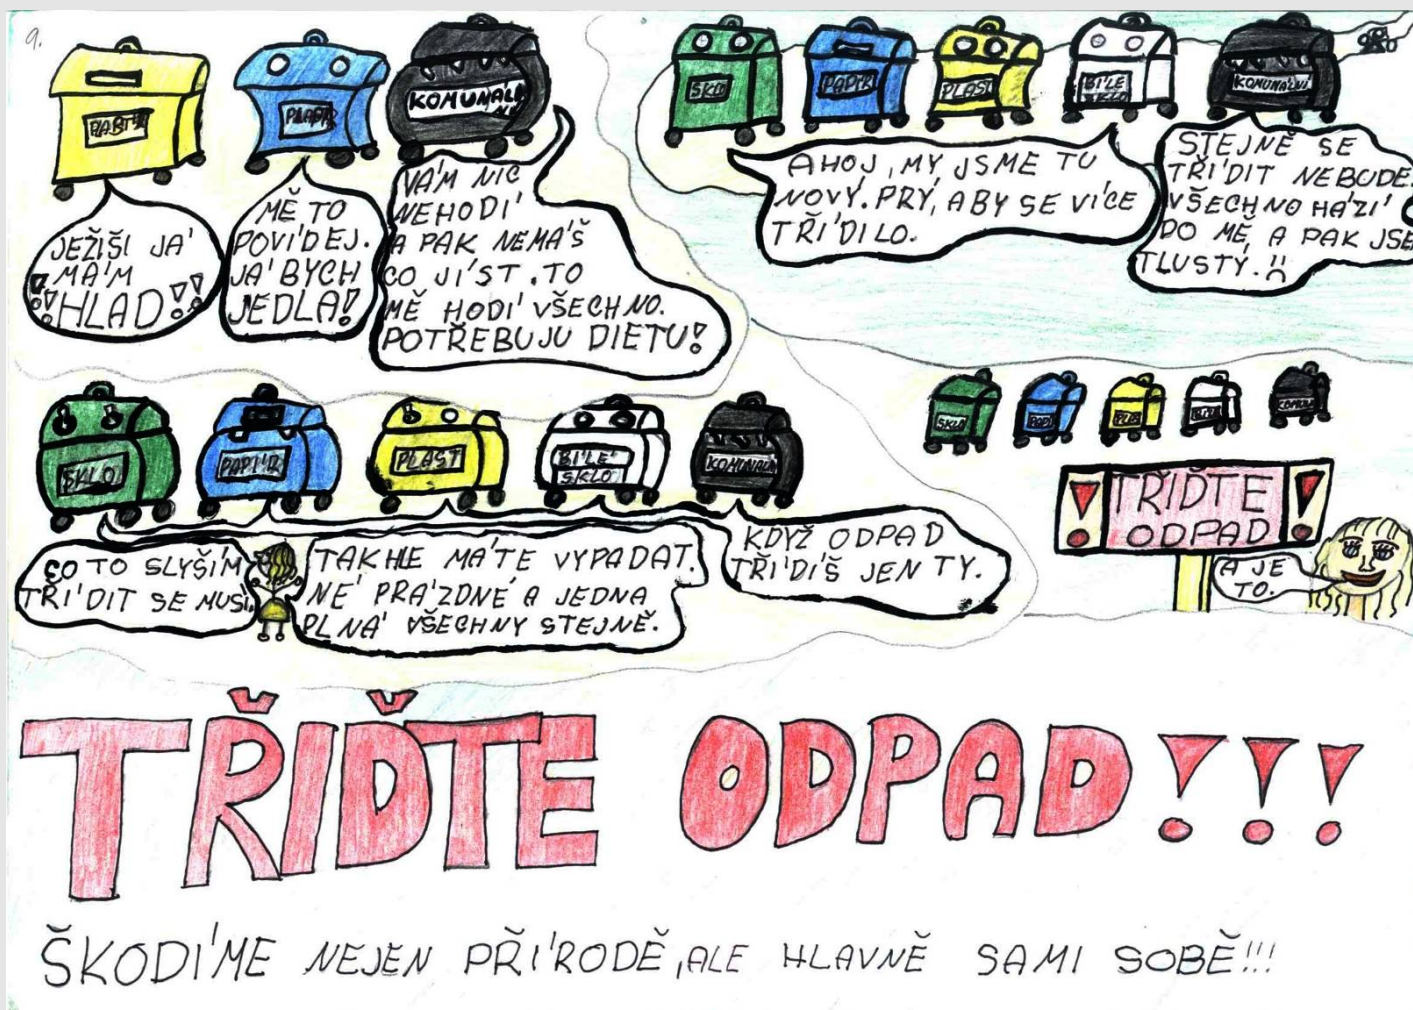 9.
PAPÍR
KOMUNÁLNÍ
JEŽIŠI JÁ
MÁM
!!HLAD!!
MĚ TO
POVÍDEJ.
JÁ BYCH
JEDLA!
VÁM NIC
NEHODÍ
A PAK NEMÁŠ
CO JÍST. TO
MĚ HODÍ VŠECHNO.
POTŘEBUJU DIETU!
SKLO
PAPÍR
PLAST
BÍLÉ
SKLO
KOMUNÁLNÍ
AHOJ, MY JSME TU
NOVÝ. PRÝ, ABY SE VÍCE
TŘÍDILO.
STEJNĚ SE
TŘÍDIT NEBUDE.
VŠECHNO HÁZÍ
DO MĚ, A PAK JSE
TLUSTÝ. :(
SKLO
PAPÍR
PLAST
BÍLÉ
SKLO
KOMUNÁLNÍ
CO TO SLYŠÍM
TŘÍDIT SE MUSÍ.
TAKHLE MÁTE VYPADAT.
NÉ PRÁZDNÉ A JEDNA
PLNÁ VŠECHNY STEJNĚ.
KDYŽ ODPAD
TŘÍDÍŠ JEN TY.
SKLO
! TŘIĎTE !
ODPAD
A JE
TO.
TŘIĎTE ODPAD!!!
ŠKODÍME NEJEN PŘÍRODĚ, ALE HLAVNĚ SAMI SOBĚ!!!